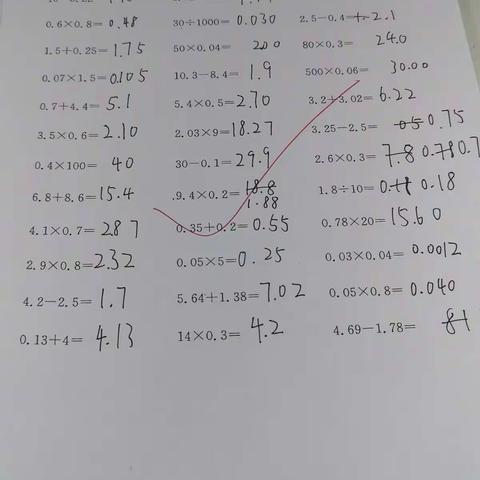 0.6×0.8= 0.48 30÷1000= 0.030 2.5-0.4= 2.1
1.5+0.25= 1.75 50×0.04= 200 80×0.3= 24.0
0.07×1.5= 0.105 10.3-8.4= 1.9 500×0.06= 30.00
0.7+4.4= 5.1 5.4×0.5= 2.70 3.2+3.02= 6.22
3.5×0.6= 2.10 2.03×9= 18.27 3.25-2.5= 0.75
0.4×100= 40 30-0.1= 29.9 2.6×0.3= 7.8 0.78
6.8+8.6= 15.4 9.4×0.2= 18.8 1.8÷10= 0.18
1.88
4.1×0.7= 287 0.35+0.2= 0.55 0.78×20= 15.60
2.9×0.8= 2.32 0.05×5= 0.25 0.03×0.04= 0.0012
4.2-2.5= 1.7 5.64+1.38= 7.02 0.05×0.8= 0.040
0.13+4= 4.13 14×0.3= 4.2 4.69-1.78=